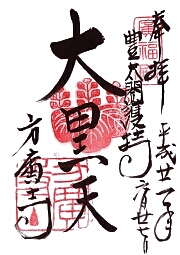 奉拝
平成廿一年
六月廿七日
豊太閤護持
大黒天
方廣寺